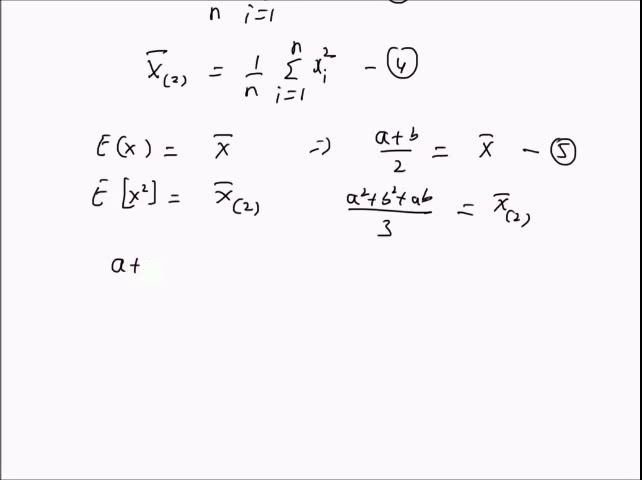 n i=1
x̄(2) = 1/n Σ_{i=1}^{n} x_i^2 - ④
E(x) = x̄ ⇒ (a+b)/2 = x̄ - ⑤
E[x²] = x̄(2) (a²+b²+ab)/3 = x̄(2)
a+